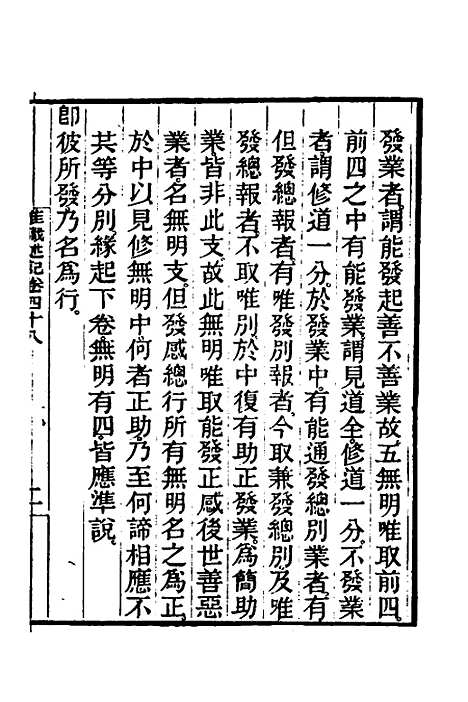 發業者。謂能發起善不善業故。五無明唯取前四。
前四之中有能發業。謂見道全。修道一分。不發業
者。謂修道一分。於發業中。有能通發總別業者。有
但發總報者。有唯發別報者。今取兼發總別。及唯
發總報者。不取唯別。於中復有助正發業。爲簡助
業皆非此支。故此無明唯取能發正感後世善惡
業者。名無明支。但發感總行所有無明名之爲正。
於中以見修無明中。何者正助。乃至何諦相應不
共等分別。緣起下卷。無明有四。皆應準說。
卽彼所發乃名爲行。
唯識述記卷四十八